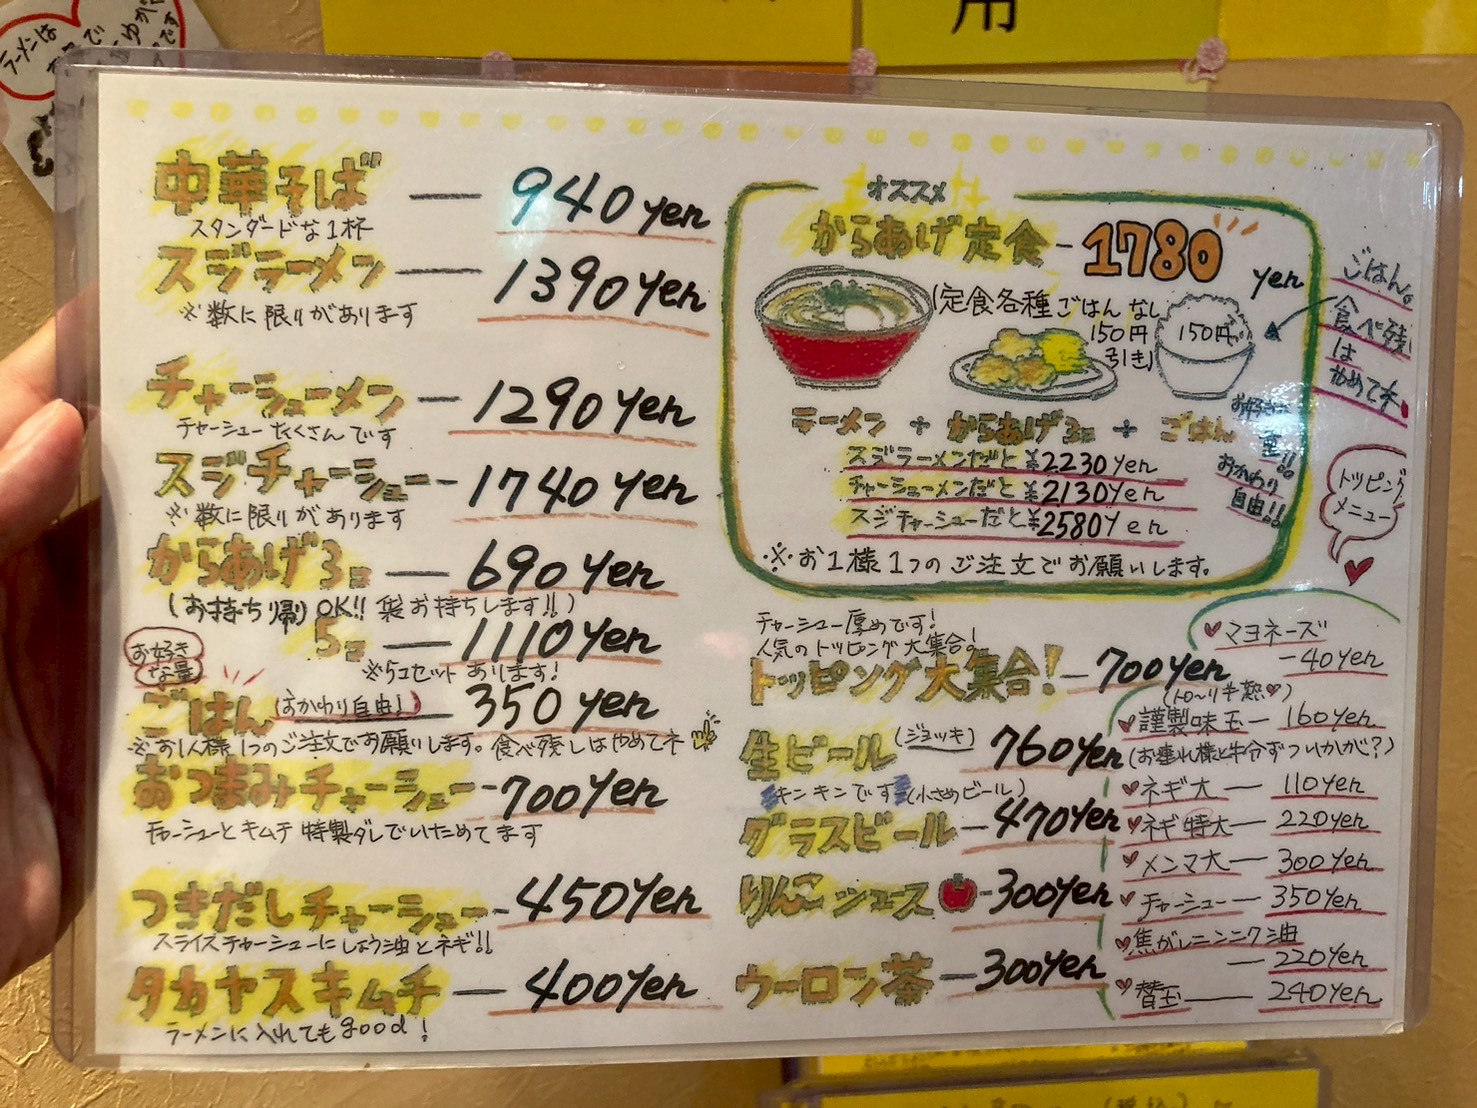 用
ラーメンは
中華そば — 940yen
スタンダードな1杯
スジラーメン — 1390yen
※数に限りがあります
チャーシューメン — 1290yen
チャーシューたくさんです
スジチャーシュー - 1740yen
※数に限りがあります
からあげ3コ — 690yen
(お持ち帰りOK!! 袋お持ちします!!)
5コ — 1110yen
※5コセットあります!
お好き
な量
ごはん(おかわり自由!) 350yen
※お1人様1つのご注文でお願いします。食べ残しはやめてネ
おつまみチャーシュー - 700yen
チャーシューとキムチ特製ダレでいためてます
つきだしチャーシュー - 450yen
スライスチャーシューにしょう油とネギ!!
タカヤスキムチ — 400yen
ラーメンに入れてもgood!
オススメ
からあげ定食 - 1780
yen
(定食各種ごはんなし
150円
引き)
150円
ラーメン + からあげ3コ + ごはん
スジラーメンだと¥2230yen
チャーシューメンだと¥2130yen
スジチャーシューだと¥2580yen
※お1様1つのご注文でお願いします。
ごはん。
食べ残し
は
やめてネ
お好きな
量!!
おかわり
自由!!
トッピング
メニュー
チャーシュー厚めです!
人気のトッピング大集合!
トッピング大集合! — 700yen
生ビール(ジョッキ) 760yen
キンキンです (小さめビール)
グラスビール — 470yen
りんごジュース - 300yen
ウーロン茶 — 300yen
マヨネーズ
- 40yen
(トロ〜リ半熟♥)
謹製味玉 — 160yen
(お連れ様と半分ずついかが?)
ネギ大 — 110yen
ネギ特大 — 220yen
メンマ大 — 300yen
チャーシュー — 350yen
焦がしニンニク油
— 220yen
替玉 — 240yen